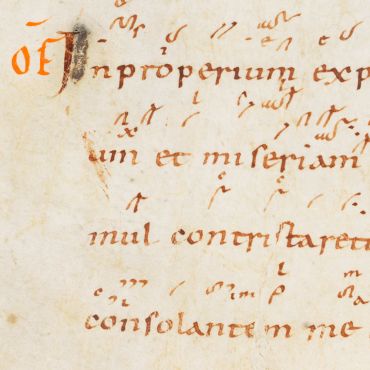 OF Inproperium exp
um et miseriam
mul contristaret
consolantem me